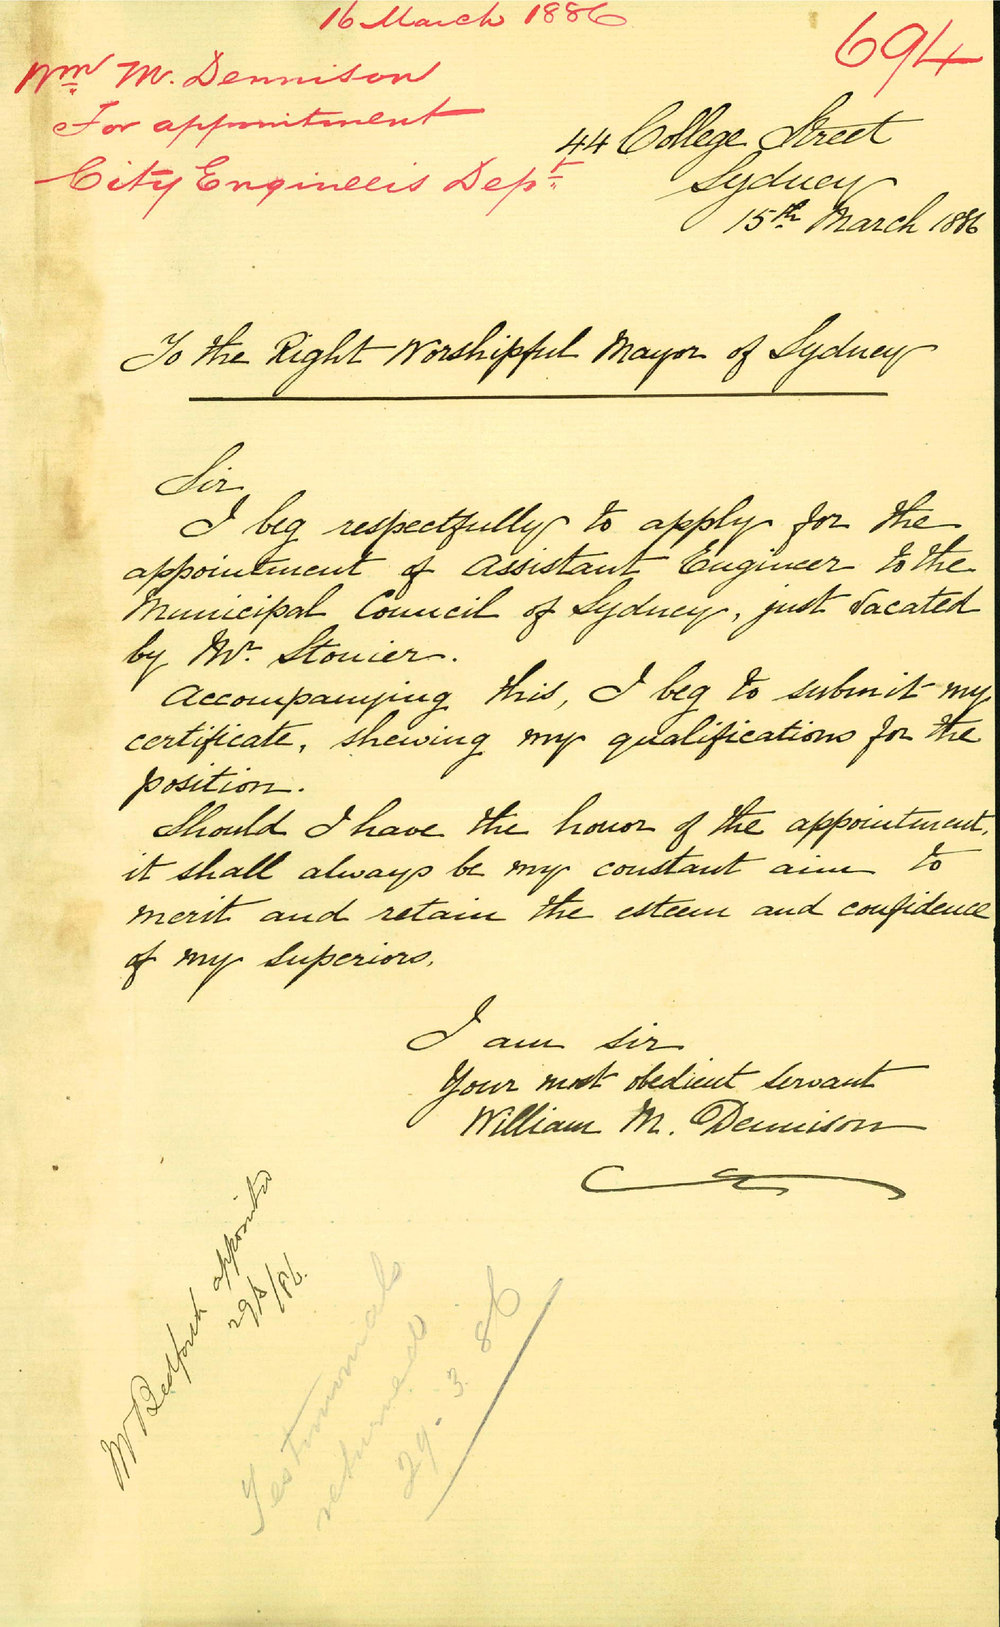 16 March 1886
694
Wm M. Dennison
For appointment
City Engineers Dept
44 College Street
Sydney
15th March 1886
To the Right Worshipful Mayor of Sydney
Sir
I beg respectfully to apply for the
appointment of Assistant Engineer to the
Municipal Council of Sydney, just vacated
by Mr. Stonier.
Accompanying this, I beg to submit my
certificate, shewing my qualifications for the
position.
Should I have the honor of the appointment,
it shall always be my constant aim to
merit and retain the esteem and confidence
of my superiors.
I am sir
Your most obedient servant
William M. Dennison
Mr Bedford appointed
/86.
Testimonials
returned
29.3.86